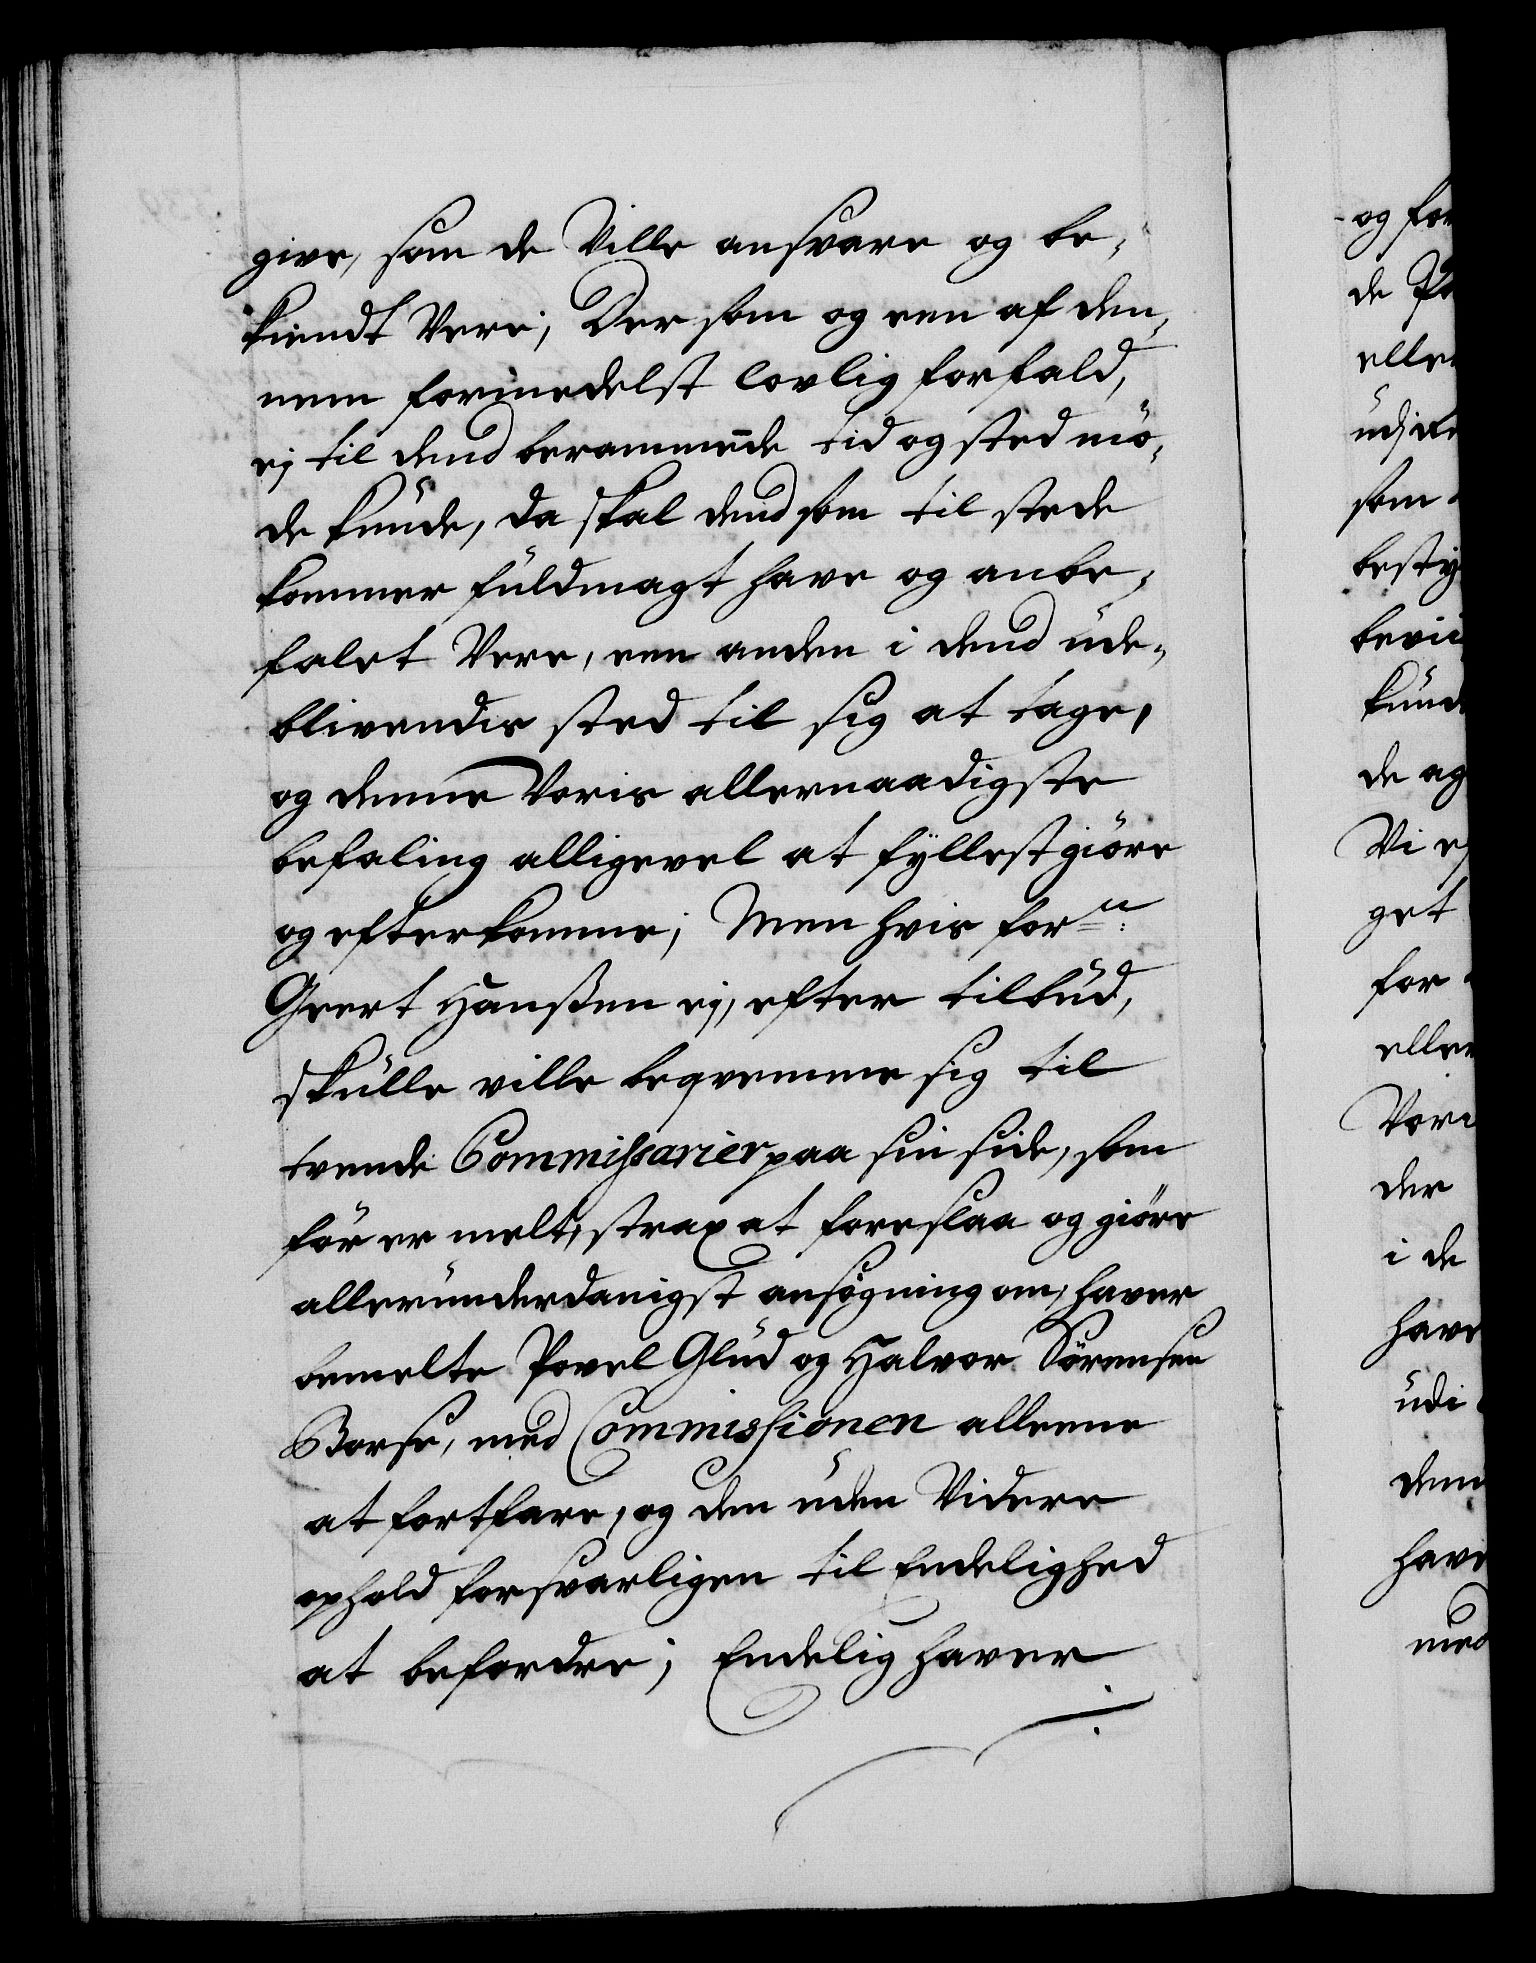 give, som de Ville ansvare og be-
kiendt Vere; Der som og een af den-
nem formedelst lovlig forfald,
ej til dend berammede tid og sted mö-
de kunde, da skal dend som til stede
kommer fuldmagt have og anbe-
falet Vere, een anden i dend ude-
blivendis sted til sig at tage,
og denne Voris allernaadigste
befaling alligevel at fyllestgiöre
og efterkomme; Men hvis forn:
Geert Hanssen ej, efter tilbud,
skulle ville beqvemme sig til
tvende Commissarier paa sin side, som
för er melt, strax at foreslaa og giöre
allerunderdanigst ansögning om, haver
bemelte Povel Glud og Halvor Sörensen
Borse, med Commissionen alleene
at fortfare, og den uden Videre
ophold forsvarligen til Endelighed
at befordre; Endelig haver
og for
de Po
eller
udj
som
besty
bevii
kund
de ag
Vi ej
get
for
eller
Vori
der
i de
have
udi
dem
have
med